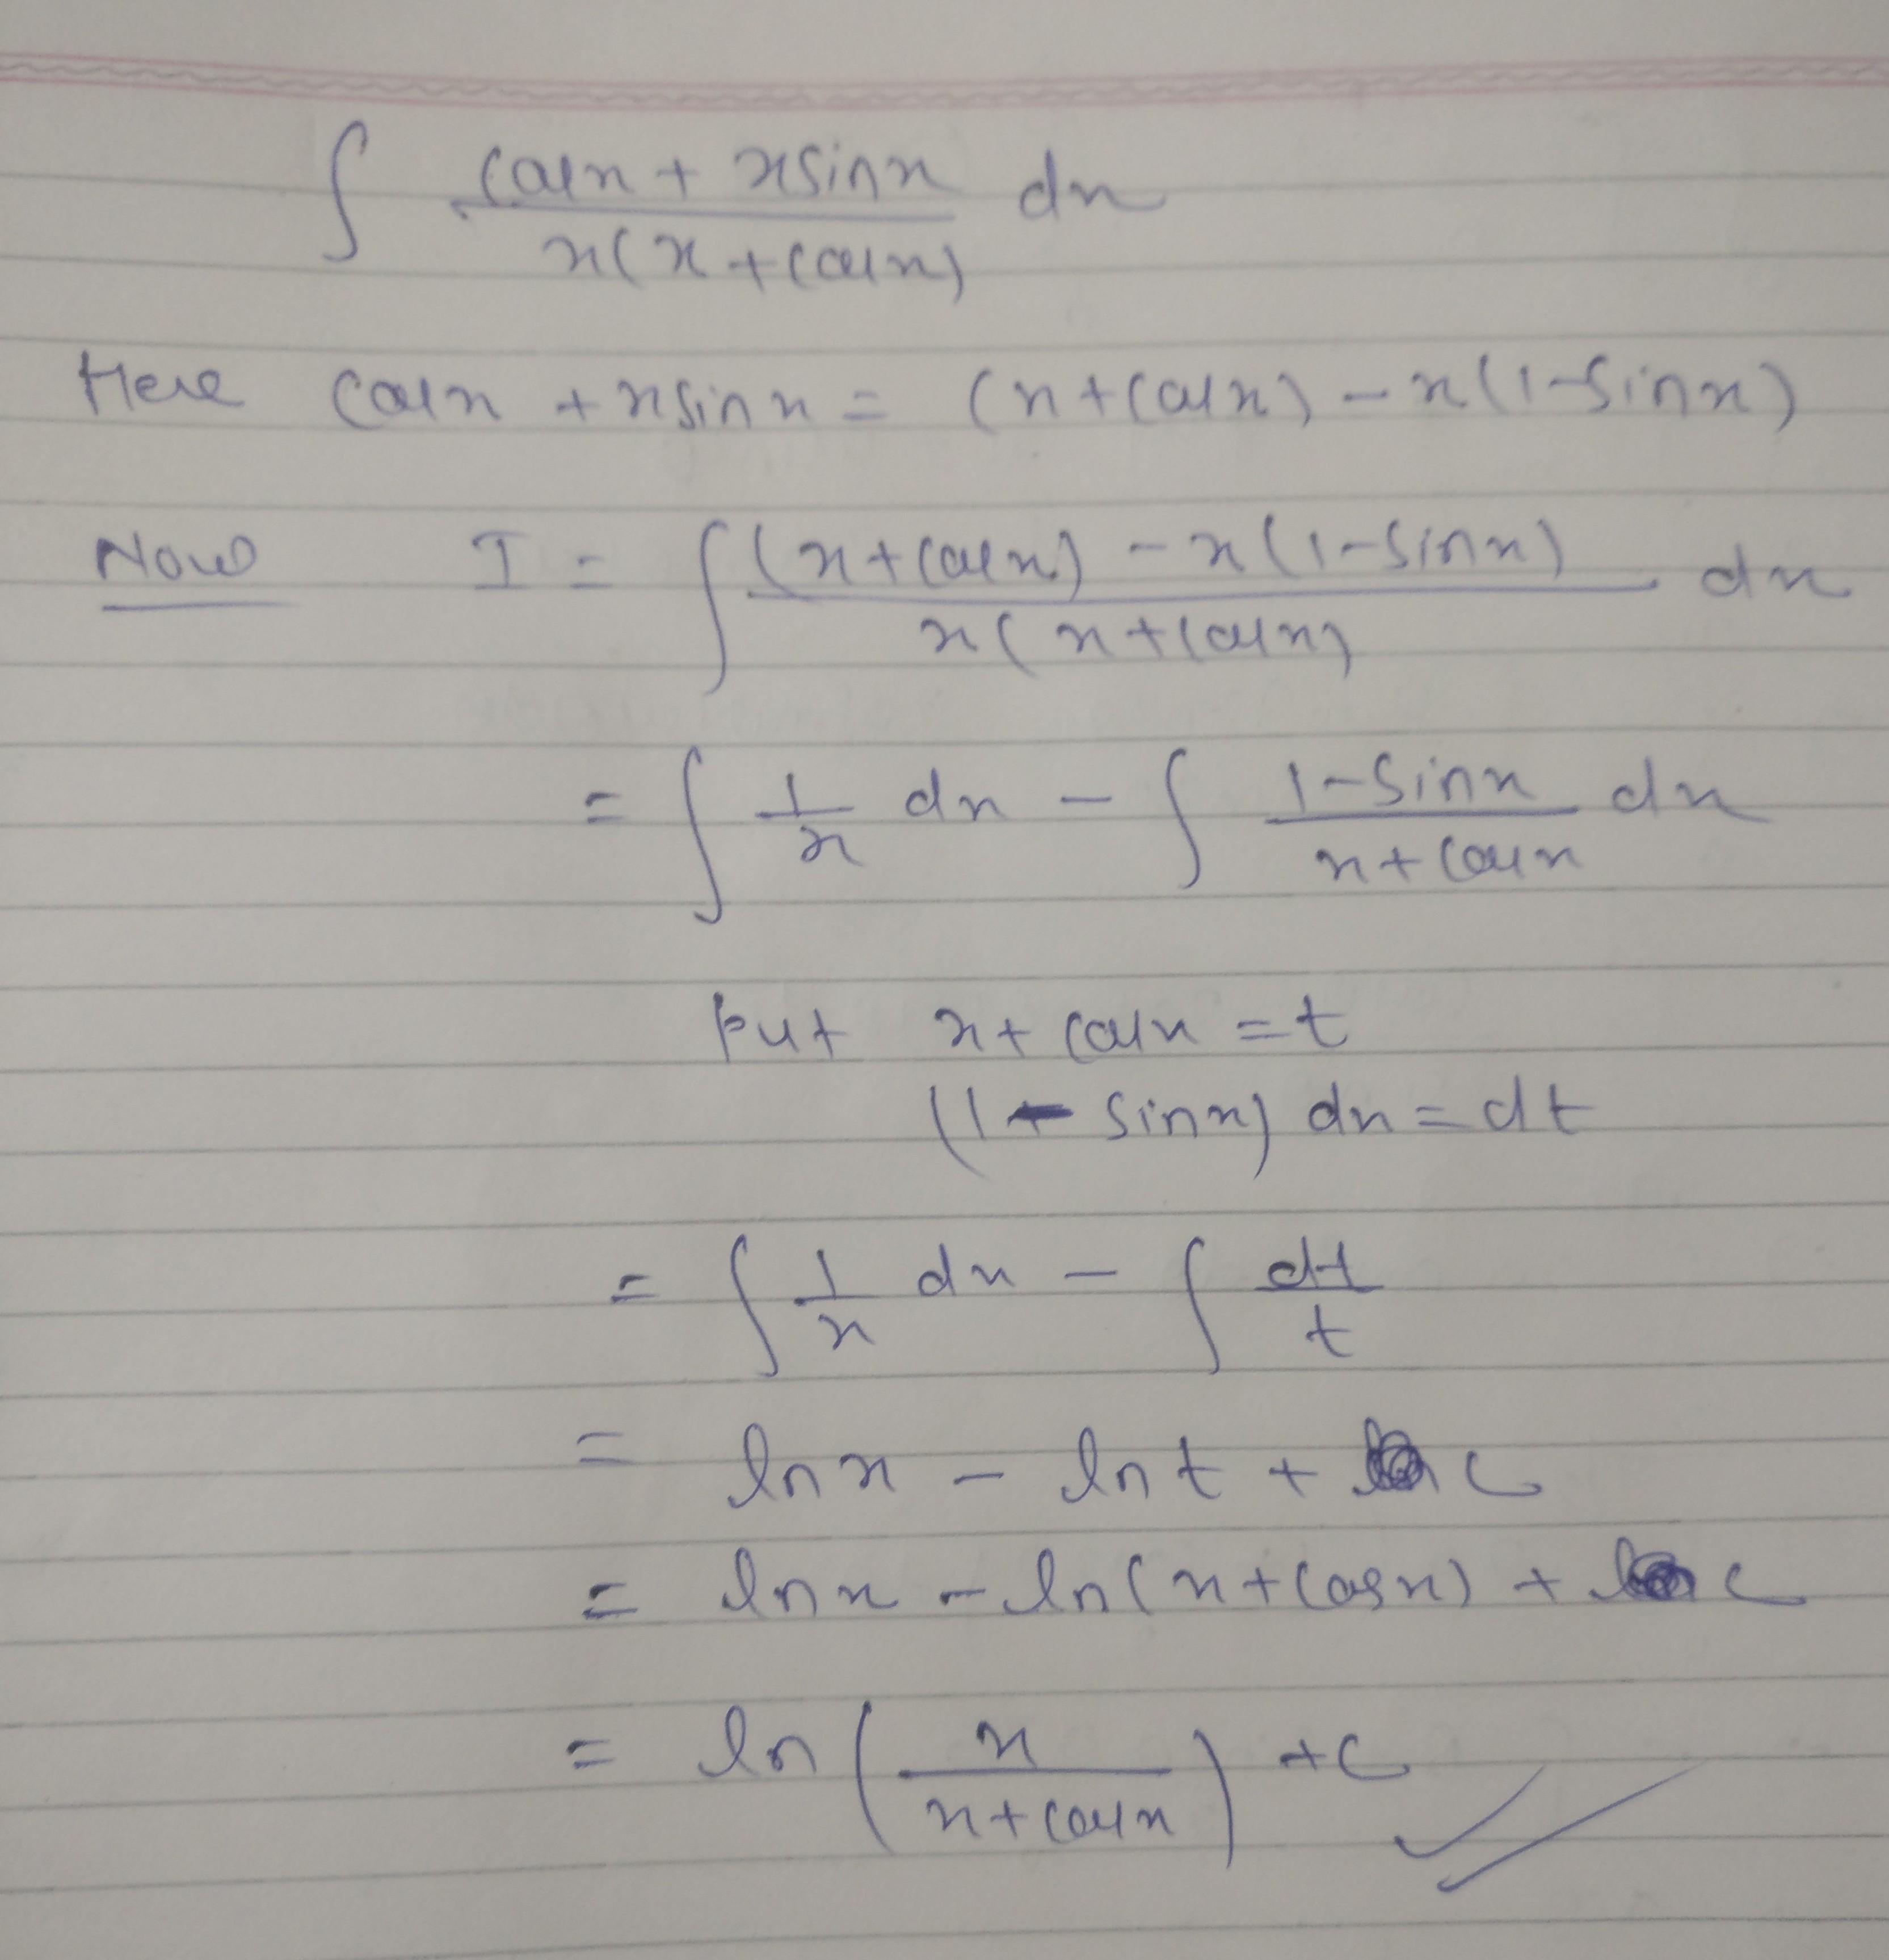 ∫ (cosx + xsinx)/(x(x+cosx)) dx
Here cosx + xsinx = (x+cosx) - x(1-sinx)
Now I = ∫ ((x+cosx) - x(1-sinx))/(x(x+cosx)) dx
= ∫ 1/x dx - ∫ (1-sinx)/(x+cosx) dx
Put x+cosx = t
(1 - sinx) dx = dt
= ∫ 1/x dx - ∫ dt/t
= lnx - lnt + c
= lnx - ln(x+cosx) + c
= ln(x/(x+cosx)) + c